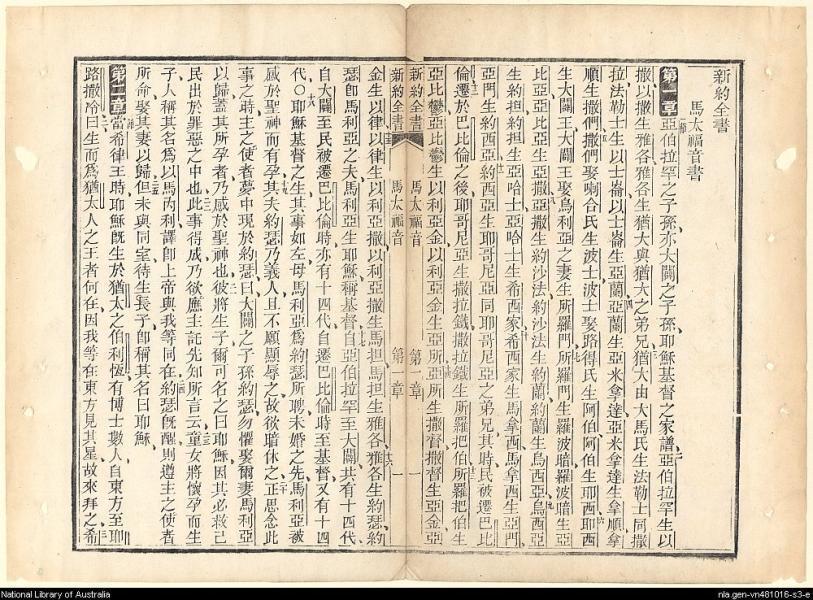 新約全書
馬太福音書
第一章亞伯拉罕之子孫亦大闢之子孫耶穌基督之家譜亞伯拉罕生以
撒以撒生雅各雅各生猶大與猶大之弟兄猶大由大馬氏生法勒士同撒
拉法勒士生以士崙以士崙生亞蘭亞蘭生亞米拿達亞米拿達生拿順拿
順生撒們撒們娶喇合氏生波士波士娶路得氏生阿伯阿伯生耶西耶西
生大闢王大闢王娶烏利亞之妻生所羅門所羅門生羅波暗羅波暗生亞
比亞亞比亞生亞撒亞撒生約沙法約沙法生約蘭約蘭生烏西亞烏西亞
生約担約担生亞哈士亞哈士生希西家希西家生馬拿西馬拿西生亞們
亞們生約西亞約西亞生耶哥尼亞同耶哥尼亞之弟兄其時民被遷巴比
倫遷於巴比倫之後耶哥尼亞生撒拉鐵撒拉鐵生所羅把伯所羅把伯生
亞比鬱亞比鬱生以利亞金以利亞金生亞所亞所生撒督撒督生亞金亞
新約全書 馬太福音 第一章 一
新約全書 馬太福音 第一章 一
金生以律以律生以利亞撒以利亞撒生馬担馬担生雅各雅各生約瑟約
瑟卽馬利亞之夫馬利亞生耶穌稱基督自亞伯拉罕至大闢共有十四代
自大闢至民被遷巴比倫時亦有十四代自遷巴比倫時至基督又有十四
代○耶穌基督之生其事如左母馬利亞爲約瑟所聘未婚之先馬利亞被
感於聖神而有孕其夫約瑟乃義人且不願顯辱之故欲暗休之正思念此
事之時主之使者夢中現於約瑟曰大闢之子孫約瑟勿懼娶爾妻馬利亞
以歸蓋其所孕者乃感於聖神也彼將生子爾可名之曰耶穌因其必救己
民出於罪惡之中也此事得成乃欲應主託先知所言云童女將懷孕而生
子人稱其名爲以馬內利譯卽上帝與我等同在約瑟旣醒則遵主之使者
所命娶其妻以歸但未與同室待生長子卽稱其名曰耶穌
第二章當希律王時耶穌旣生於猶太之伯利恆有博士數人自東方至耶
路撒冷曰生而爲猶太人之王者何在因我等在東方見其星故來拜之希
National Library of Australia
nla.gen-vn481016-s3-e